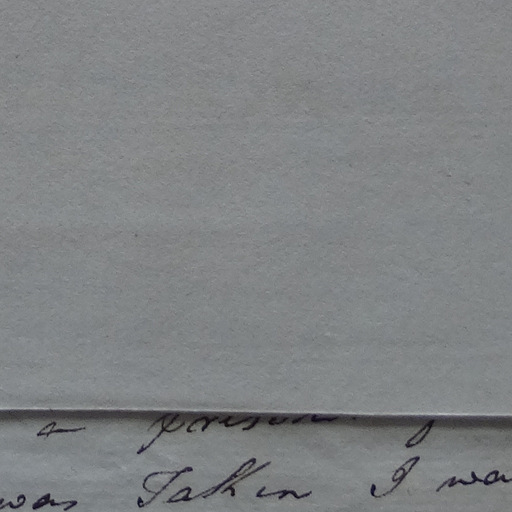 a prison.
was Taken I was